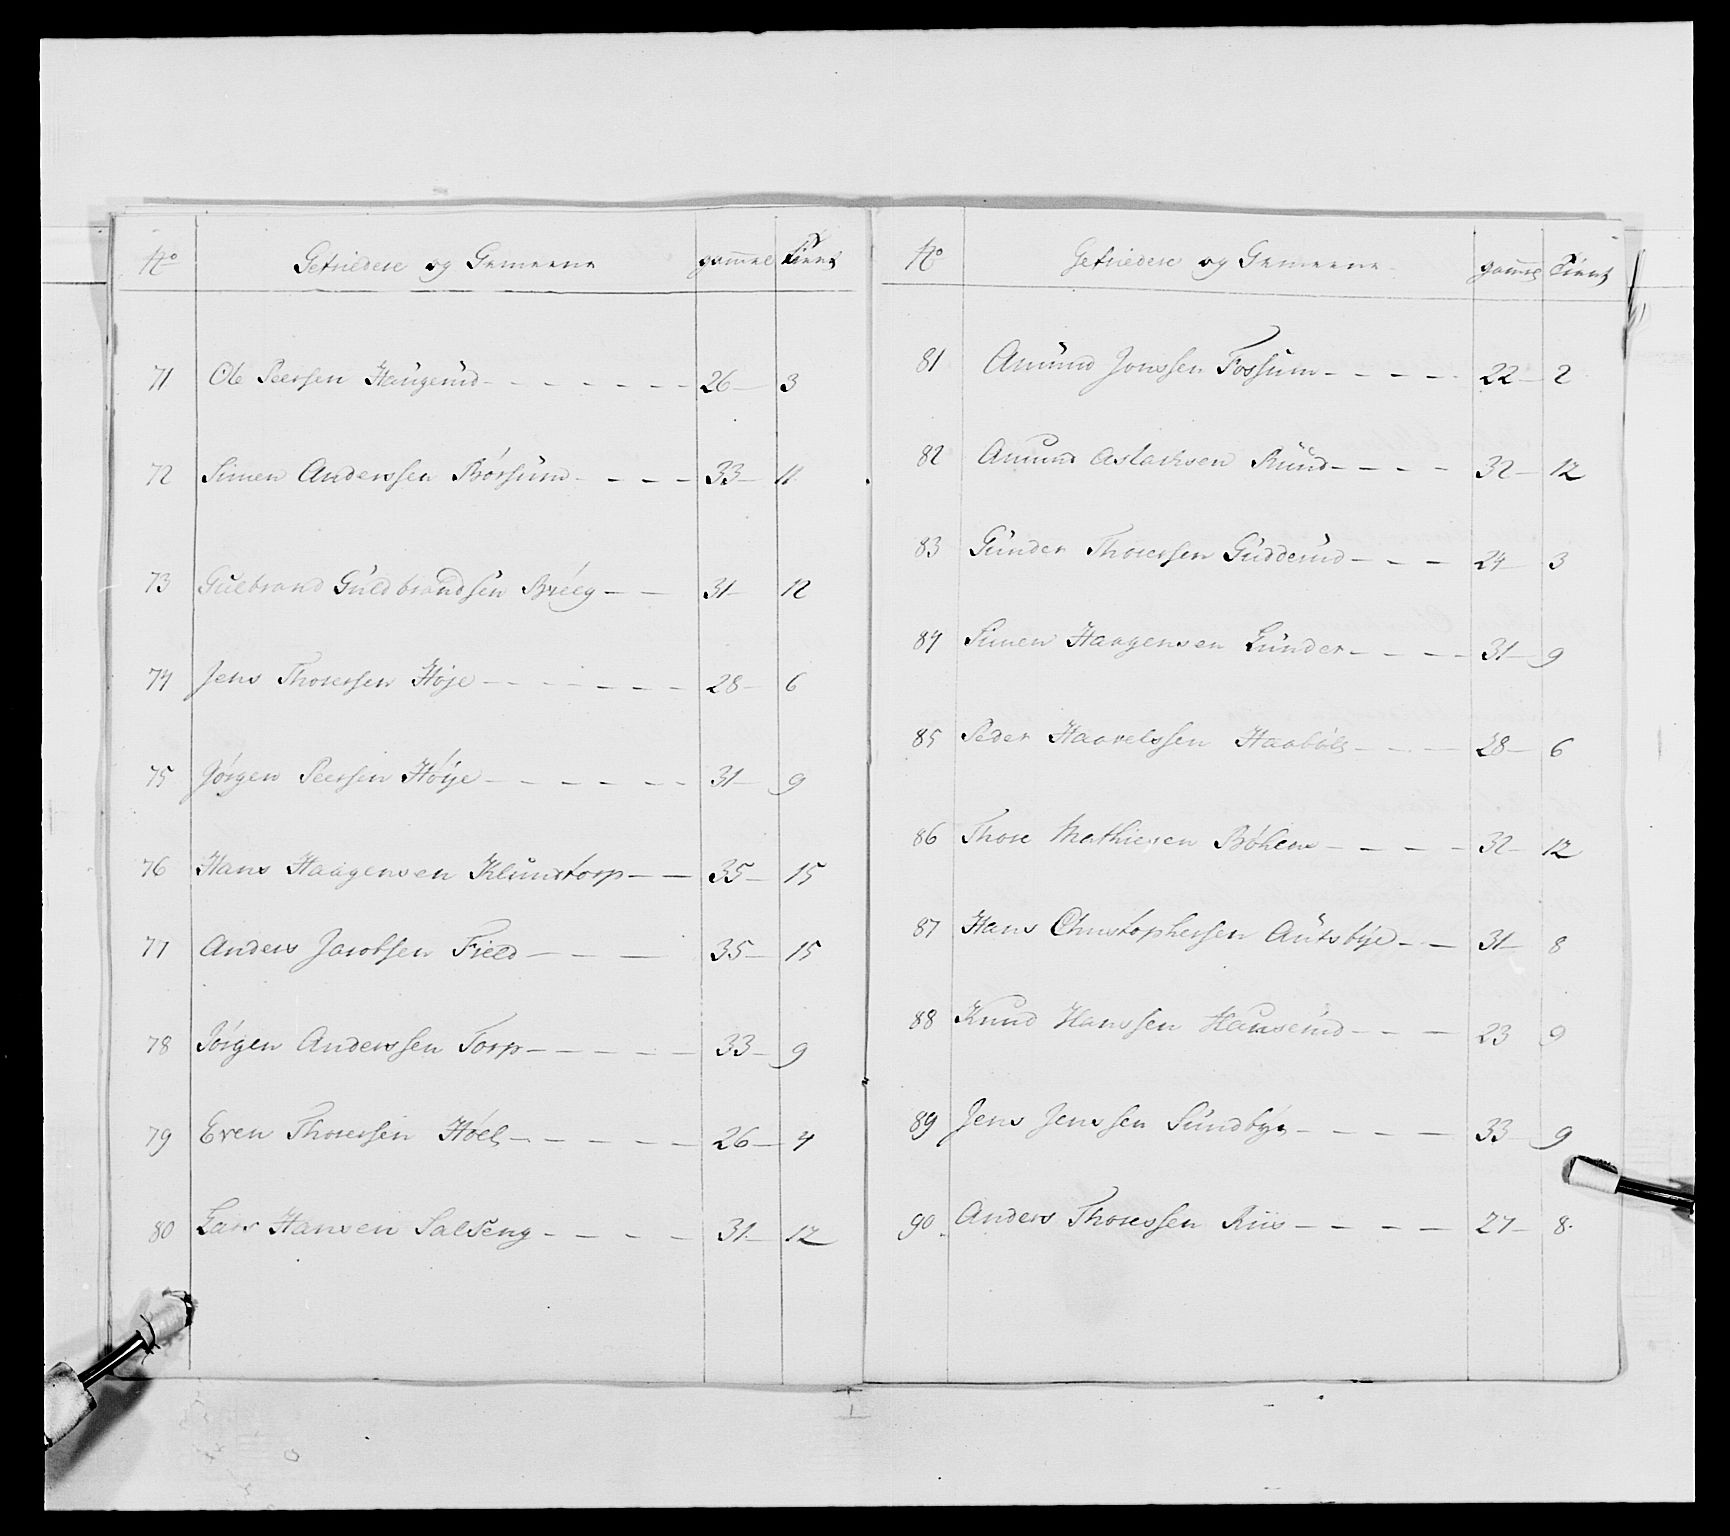 No Gefriedere og Gemeene gammel Tient
71 Ole Peersen Haugerud 26 3
72 Simen Anderssen Børsund 33 11
73 Gulbrand Guldbrandsen 31 12
74 Jens Thoressen Høje 28 6
75 Jørgen Peersen Høije 31 9
76 Hans Haagensen Klunstorp 35 15
77 Anders Jacobsen Field 35 15
78 Jørgen Anderssen Torp 33 9
79 Even Thoressen Hoel 26 4
80 Lars Hansen Salseng 31 12
No Gefriedere og Gemeene gammel Tient
81 Amund Jonssen Fossum 22 2
82 Amund Aslacksen Ruud 32 12
83 Gunder Thoressen Gudderud 24 3
84 Simen Haagensen Lunder 31 9
85 Peder Haavelssen Haabøl 28 6
86 Thore Mathiesen 32 12
87 Hans Christophersen Autsbye 31 8
88 Knud Hanssen Hauserud 23 9
89 Jens Jenssen Sundbye 33 9
90 Anders Thoressen Riis 27 8